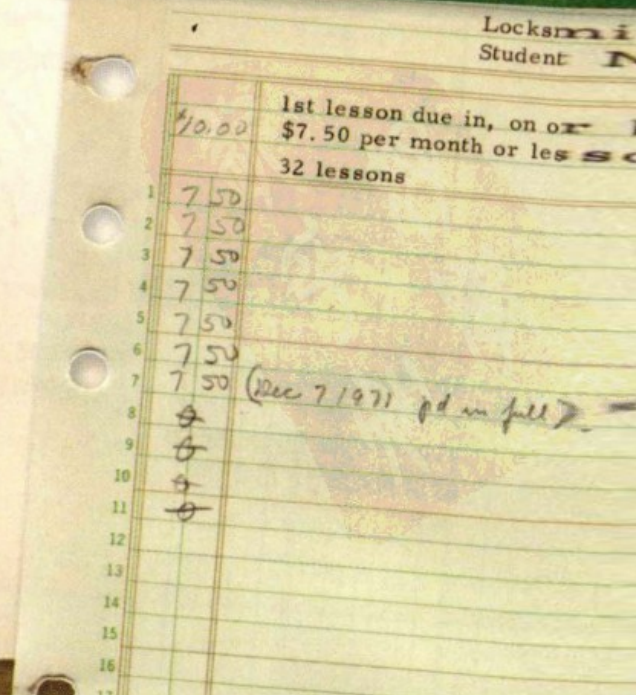 Locksmi
Student N
1st lesson due in, on or
$10.00 $7.50 per month or lesso
32 lessons
1 7 50
2 7 50
3 7 50
4 7 50
5 7 50
6 7 50
7 7 50 (Dec 7 1971 pd in full)
8 0
9 0
10 0
11 0
12
13
14
15
16
17